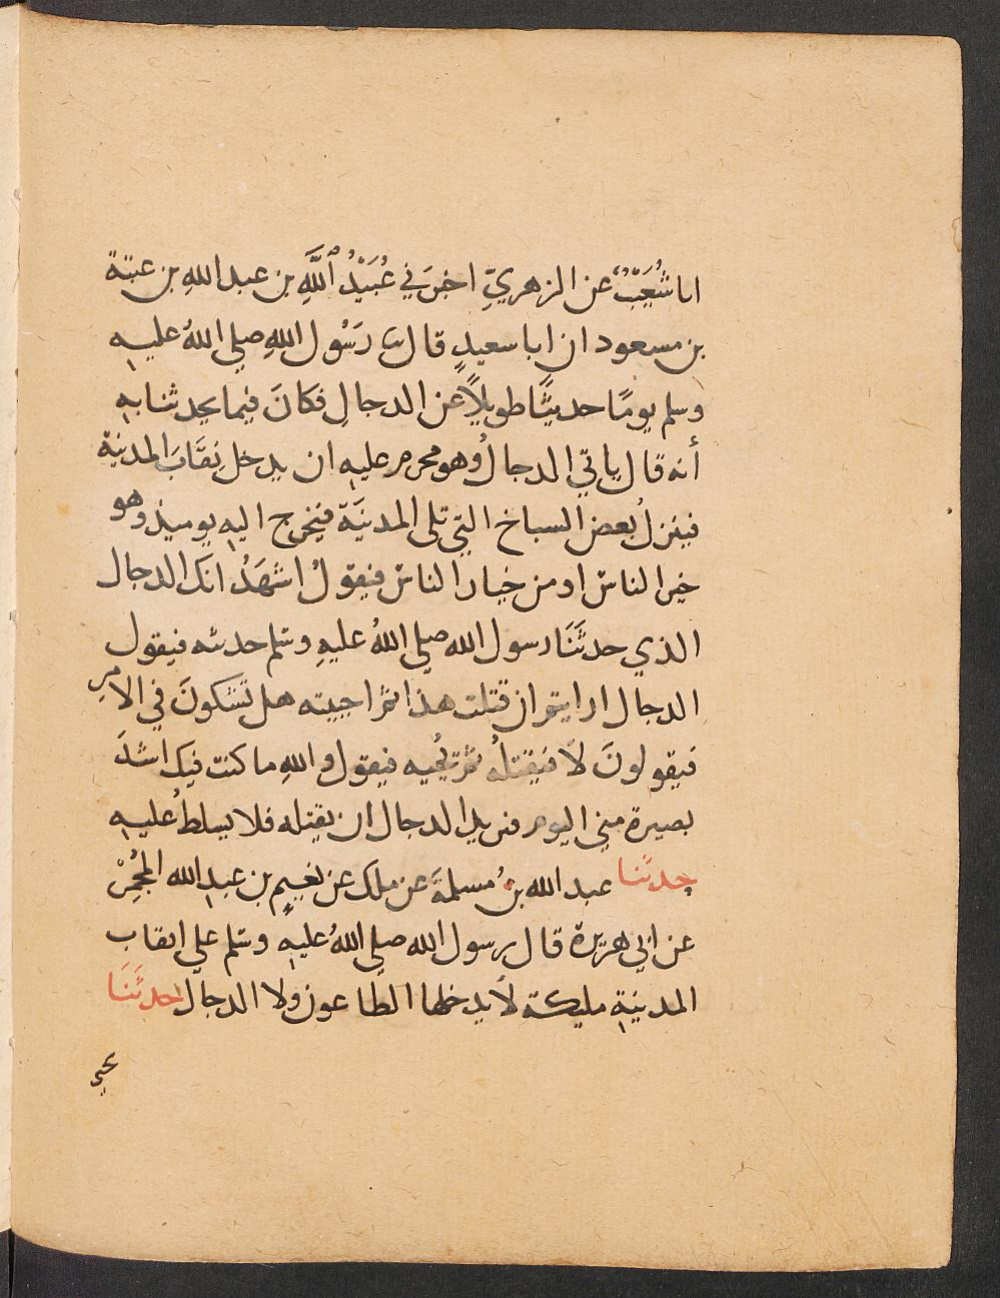 انا شُعَيْبٌ عن الزهريِّ اخبرَني عُبَيْدُ ٱللَّهِ بن عبد اللهِ بن عتبة
بن مسعود ان ابا سعيدٍ قال ثنا رَسُول اللهِ صلي اللهُ عليهِ
وسلم يومًا حديثًا طويلًا عن الدجالِ فكانَ فيما يحدثنا بهِ
أنه قال ياتي الدجالُ وهو محرم عليهِ ان يدخل نقَابَ المدينة
فينزلُ بعض السباخ التي تلى المدينَة فيخرج اليهِ يوميذٍ وهو
خير الناس او من خيار الناس فيقولُ اشهَدُ انك الدجال
الذي حدثَنَا رسول الله صلي اللهُ عليهِ وسلم حديثه فيقول
الدجال ارايتم ان قتلت هذا ثم احييته هل تشكونَ في الامرِ
فيقولونَ لا فيقتلُه ثم يُحييه فيقول واللهِ ما كنت فيك اشدَ
بصيرة مني اليوم فيريد الدجال ان يقتله فلا يسلطُ عليهِ
حدثنا عبد الله بنُ مسلمةَ عن ملك عن نعيمٍ بن عبدِ الله المُجْمِرْ
عن ابي هريرة قال رسول الله صلي اللهُ عليهِ وسلم علي انقاب
المدينةِ مليكة لا يدخلها الطاعون ولا الدجال حدثَنَا
يحيي